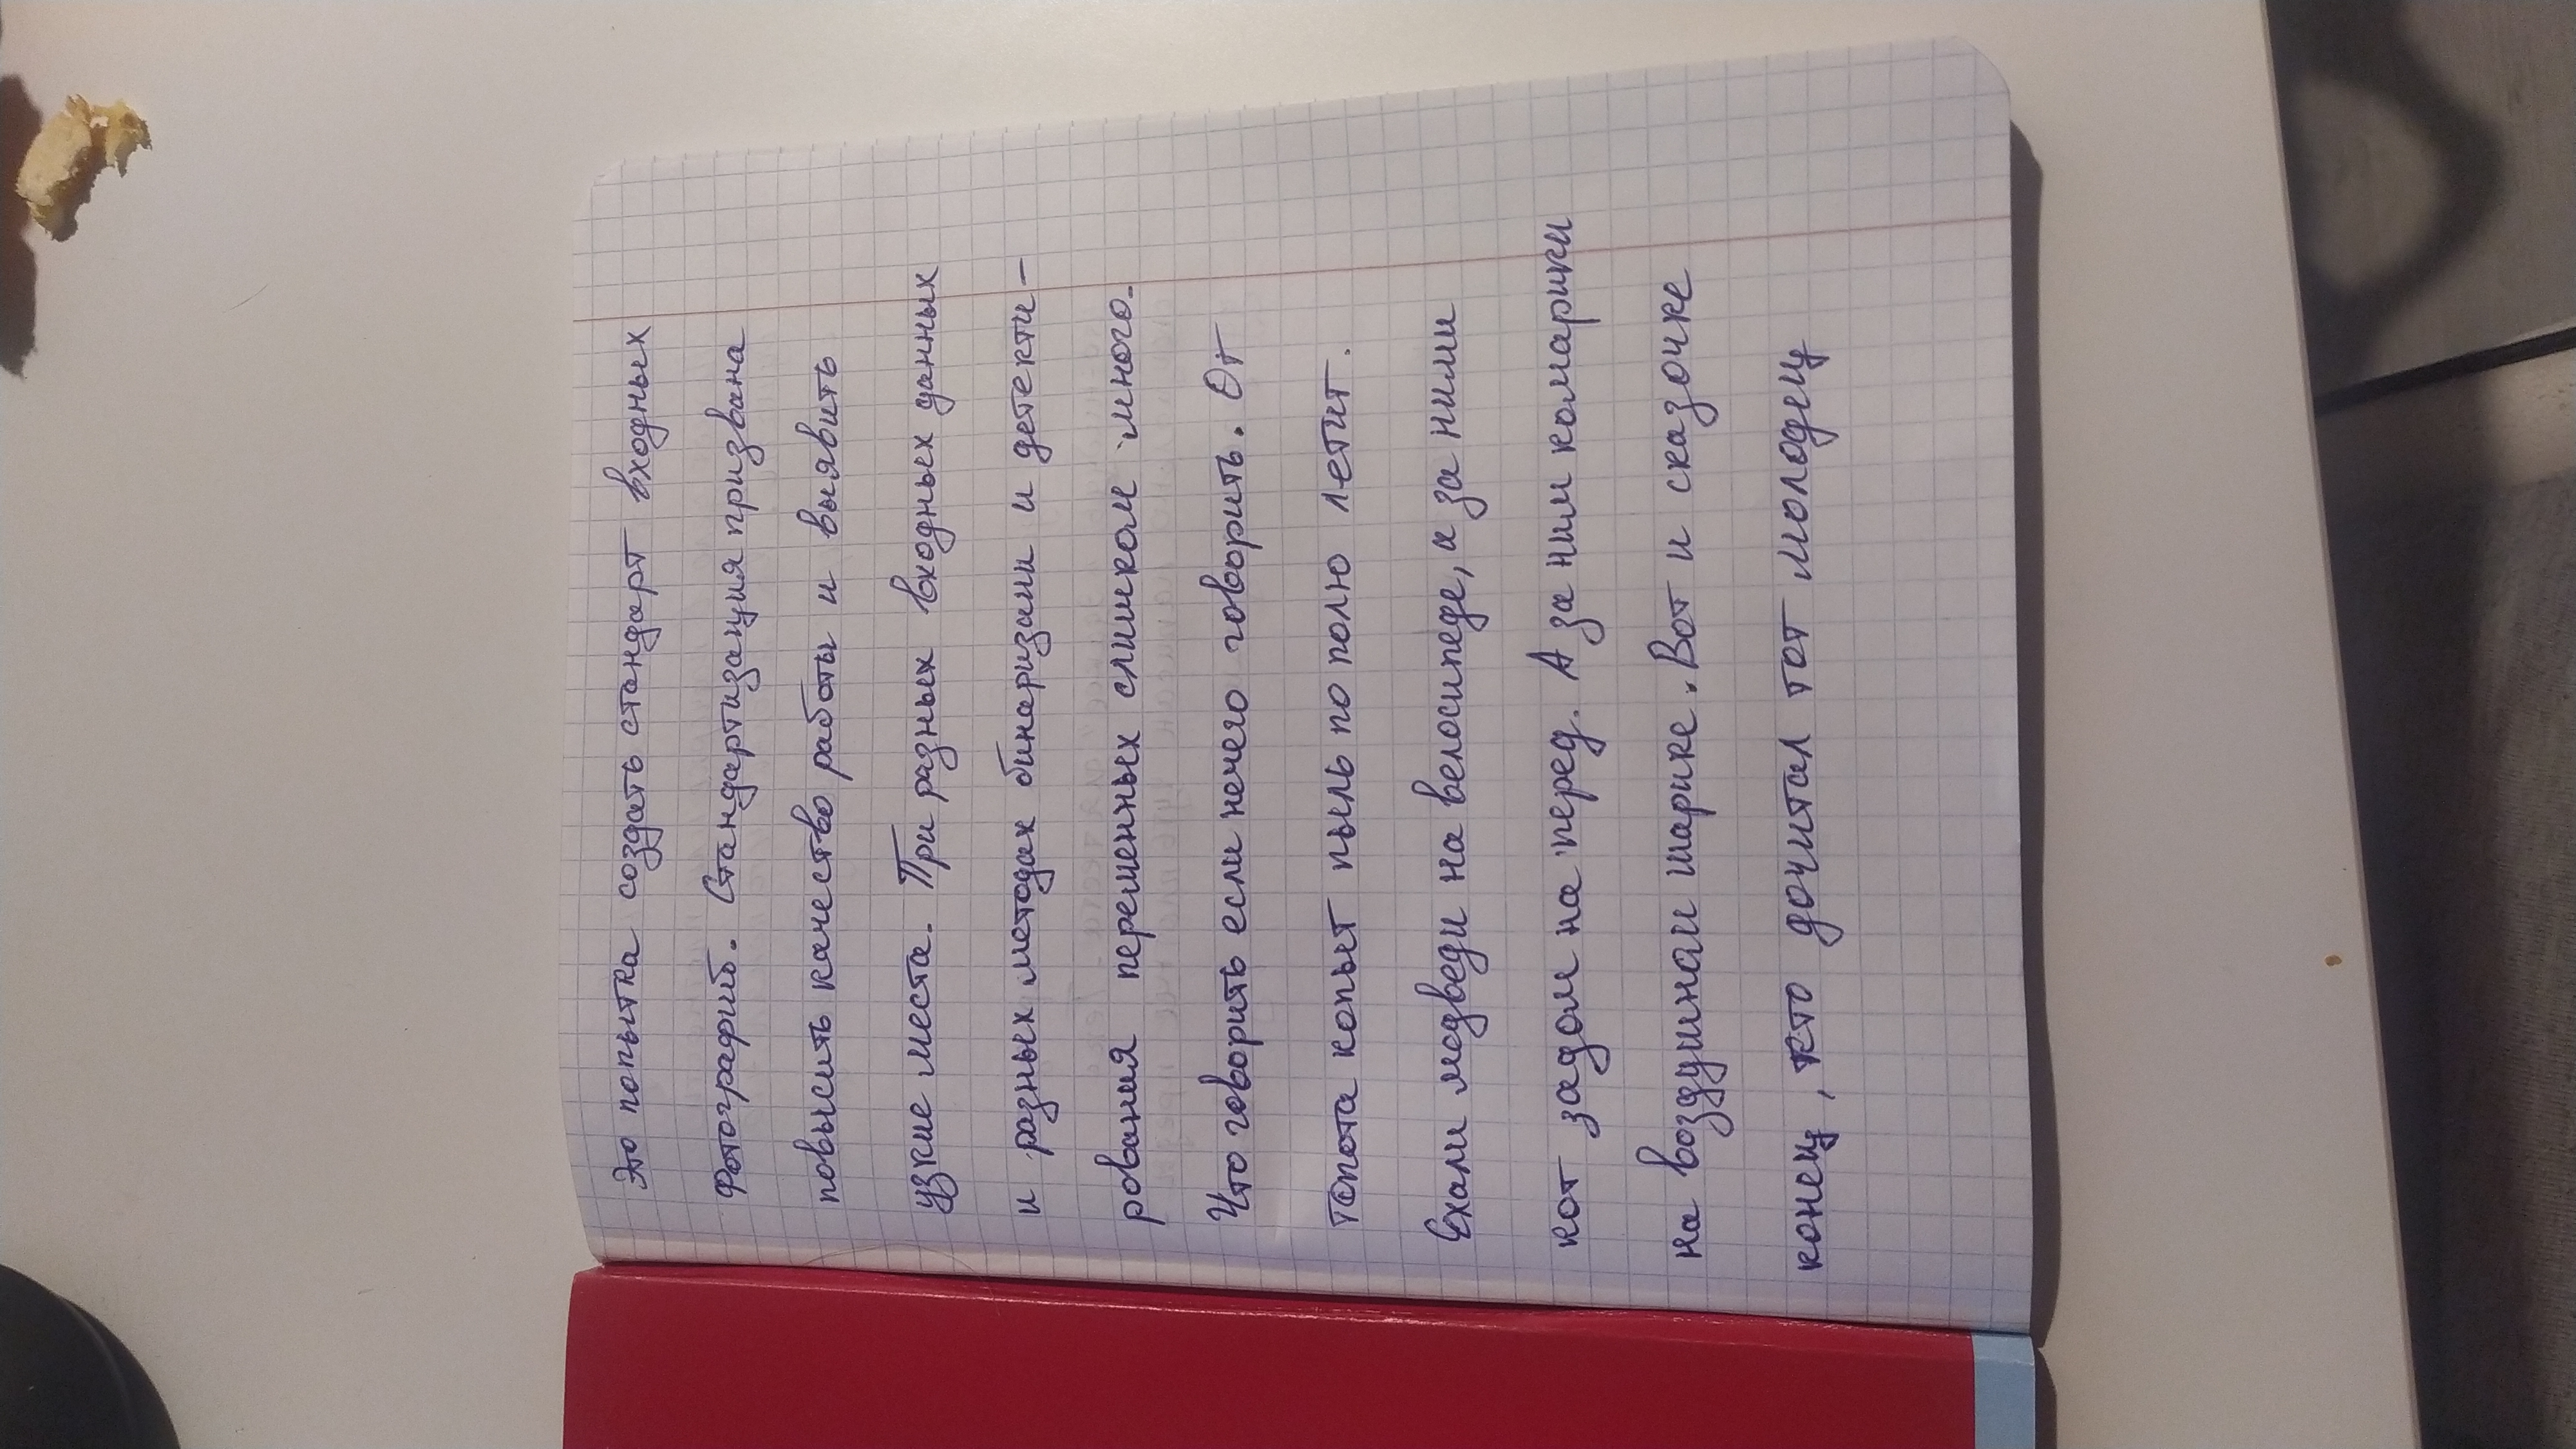 Это попытка создать стандарт входных
фотографий. Стандартизация призвана
повысить качество работы и выявить
узкие места. При разных входных данных
и разных методах бинаризаии и детекти-
рования переменных слишком много.
Что говорить если нечего говорить. От
топота копыт пыль по полю летит.
Ехали медведи на велосипеде, а за ними
кот задом на перед. А за ним комарики
на воздушном шарике. Вот и сказочке
конец, кто дочитал тот молодец